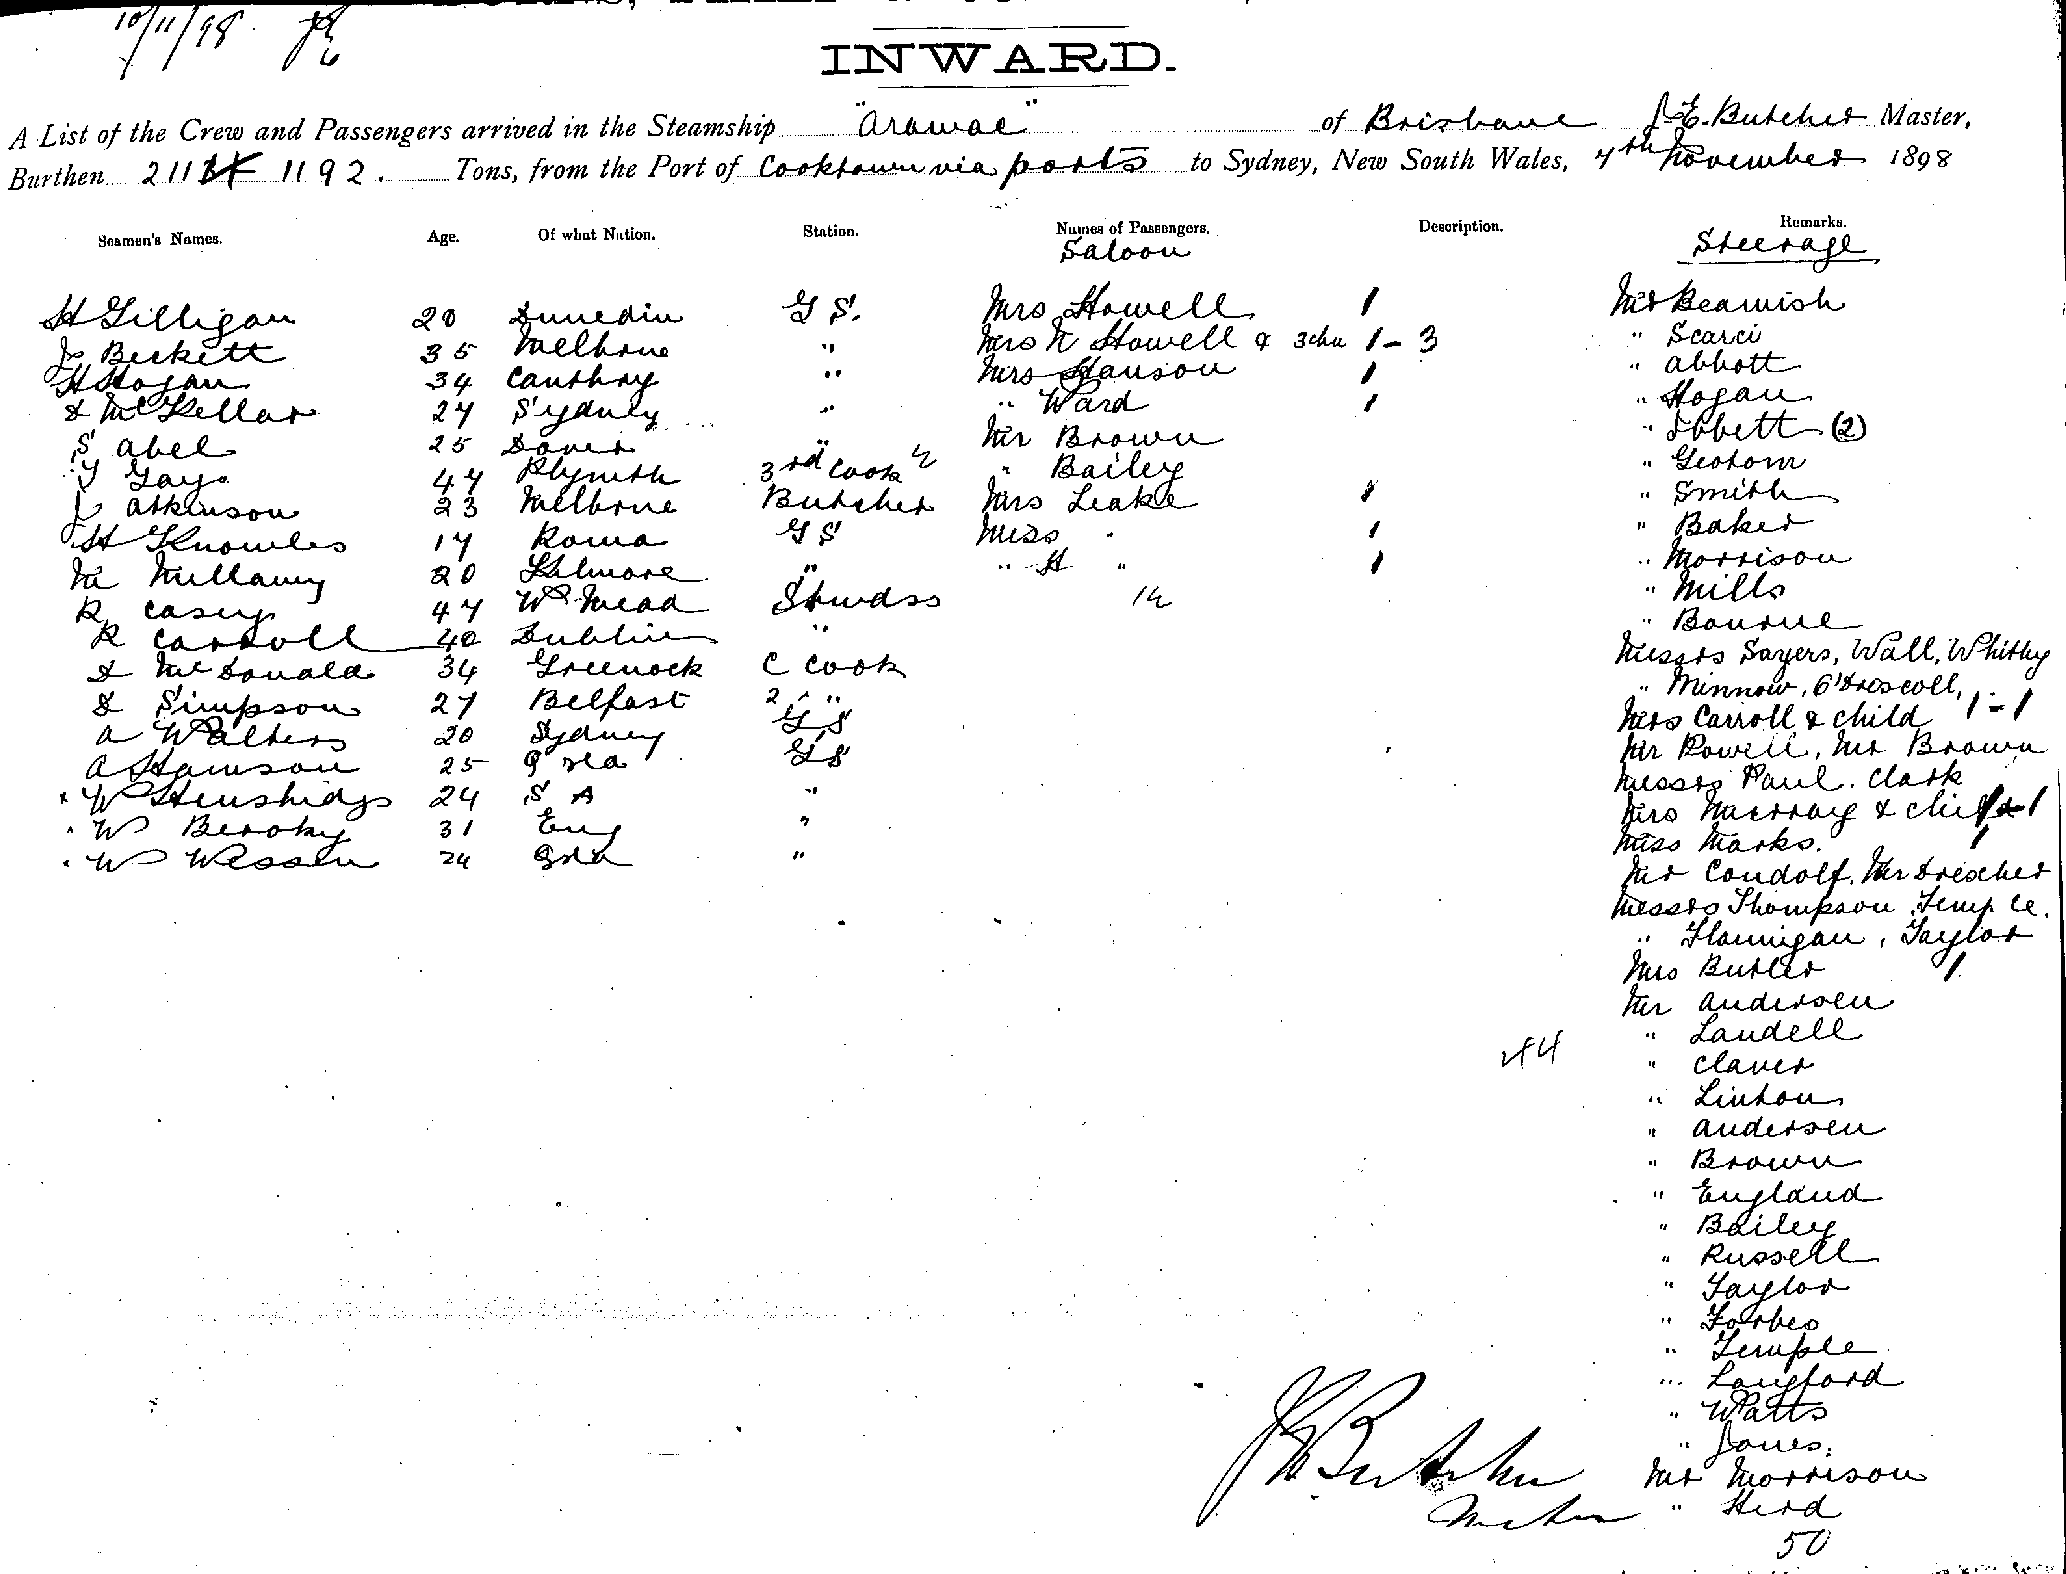 10/11/98
INWARD.
A List of the Crew and Passengers arrived in the Steamship "Aramac" of Brisbane J. E. Butcher Master,
Burthen 2114 1192. Tons, from the Port of Cooktown via ports to Sydney, New South Wales, 7th November 1898
Seamen's Names. Age. Of what Nation. Station. Names of Passengers. Description. Remarks.
Saloon Steerage
H Gilligan 20 Dunedin G S. Mrs Howell 1 Mr Beamish
J Beckett 35 Melbrne " Mrs N Howell & 3 chn 1 - 3 " Scarci
H Hogan 34 Cantbry " Mrs Hanson 1 " Abbott
D McKellar 27 Sydney " " Ward 1 " Hogan
S Abel 25 Dover " Mr Brown " Ibbett (2)
T Gays 47 Plymth 3rd Cook " Bailey " Geotom
J Atkinson 23 Melbrne Butcher Mrs Leake 1 " Smith
H Knowles 17 Roma G S Miss " 1 " Baker
M Mullany 20 Kilmore " " H " 1 " Morrison
R Casey 47 W Mead Stwdss 12 " Mills
R Carroll 40 Dublin " " Bourne
D McDonald 34 Greenock C Cook Messrs Sayers, Wall, Whitby
D Simpson 27 Belfast 2 " " " Minnow, O'Driscoll,
A Walters 20 Sydney G S Mrs Carroll & child 1 - 1
A Hamson 25 G S Mr Powell, Mr Brown
W 24 S A " Messrs Paul. Clark
W Beroky 31 Eng " Mrs Murray & child 1 - 1
W Wessen 24 " Miss Marks. 1
Mr Condolf, Mr Drescher
Messrs Thompson, Temple.
" Flannigan, Taylor
Mrs Butler 1
Mr Andersen
" Landell
44 " Claver
" Linton
" Andersen
" Brown
" England
" Bailey
" Russell
" Taylor
" Forbes
" Temple
" Langford
" Watts
" Jones.
J E Butcher Mr Morrison
Master " Herd
50